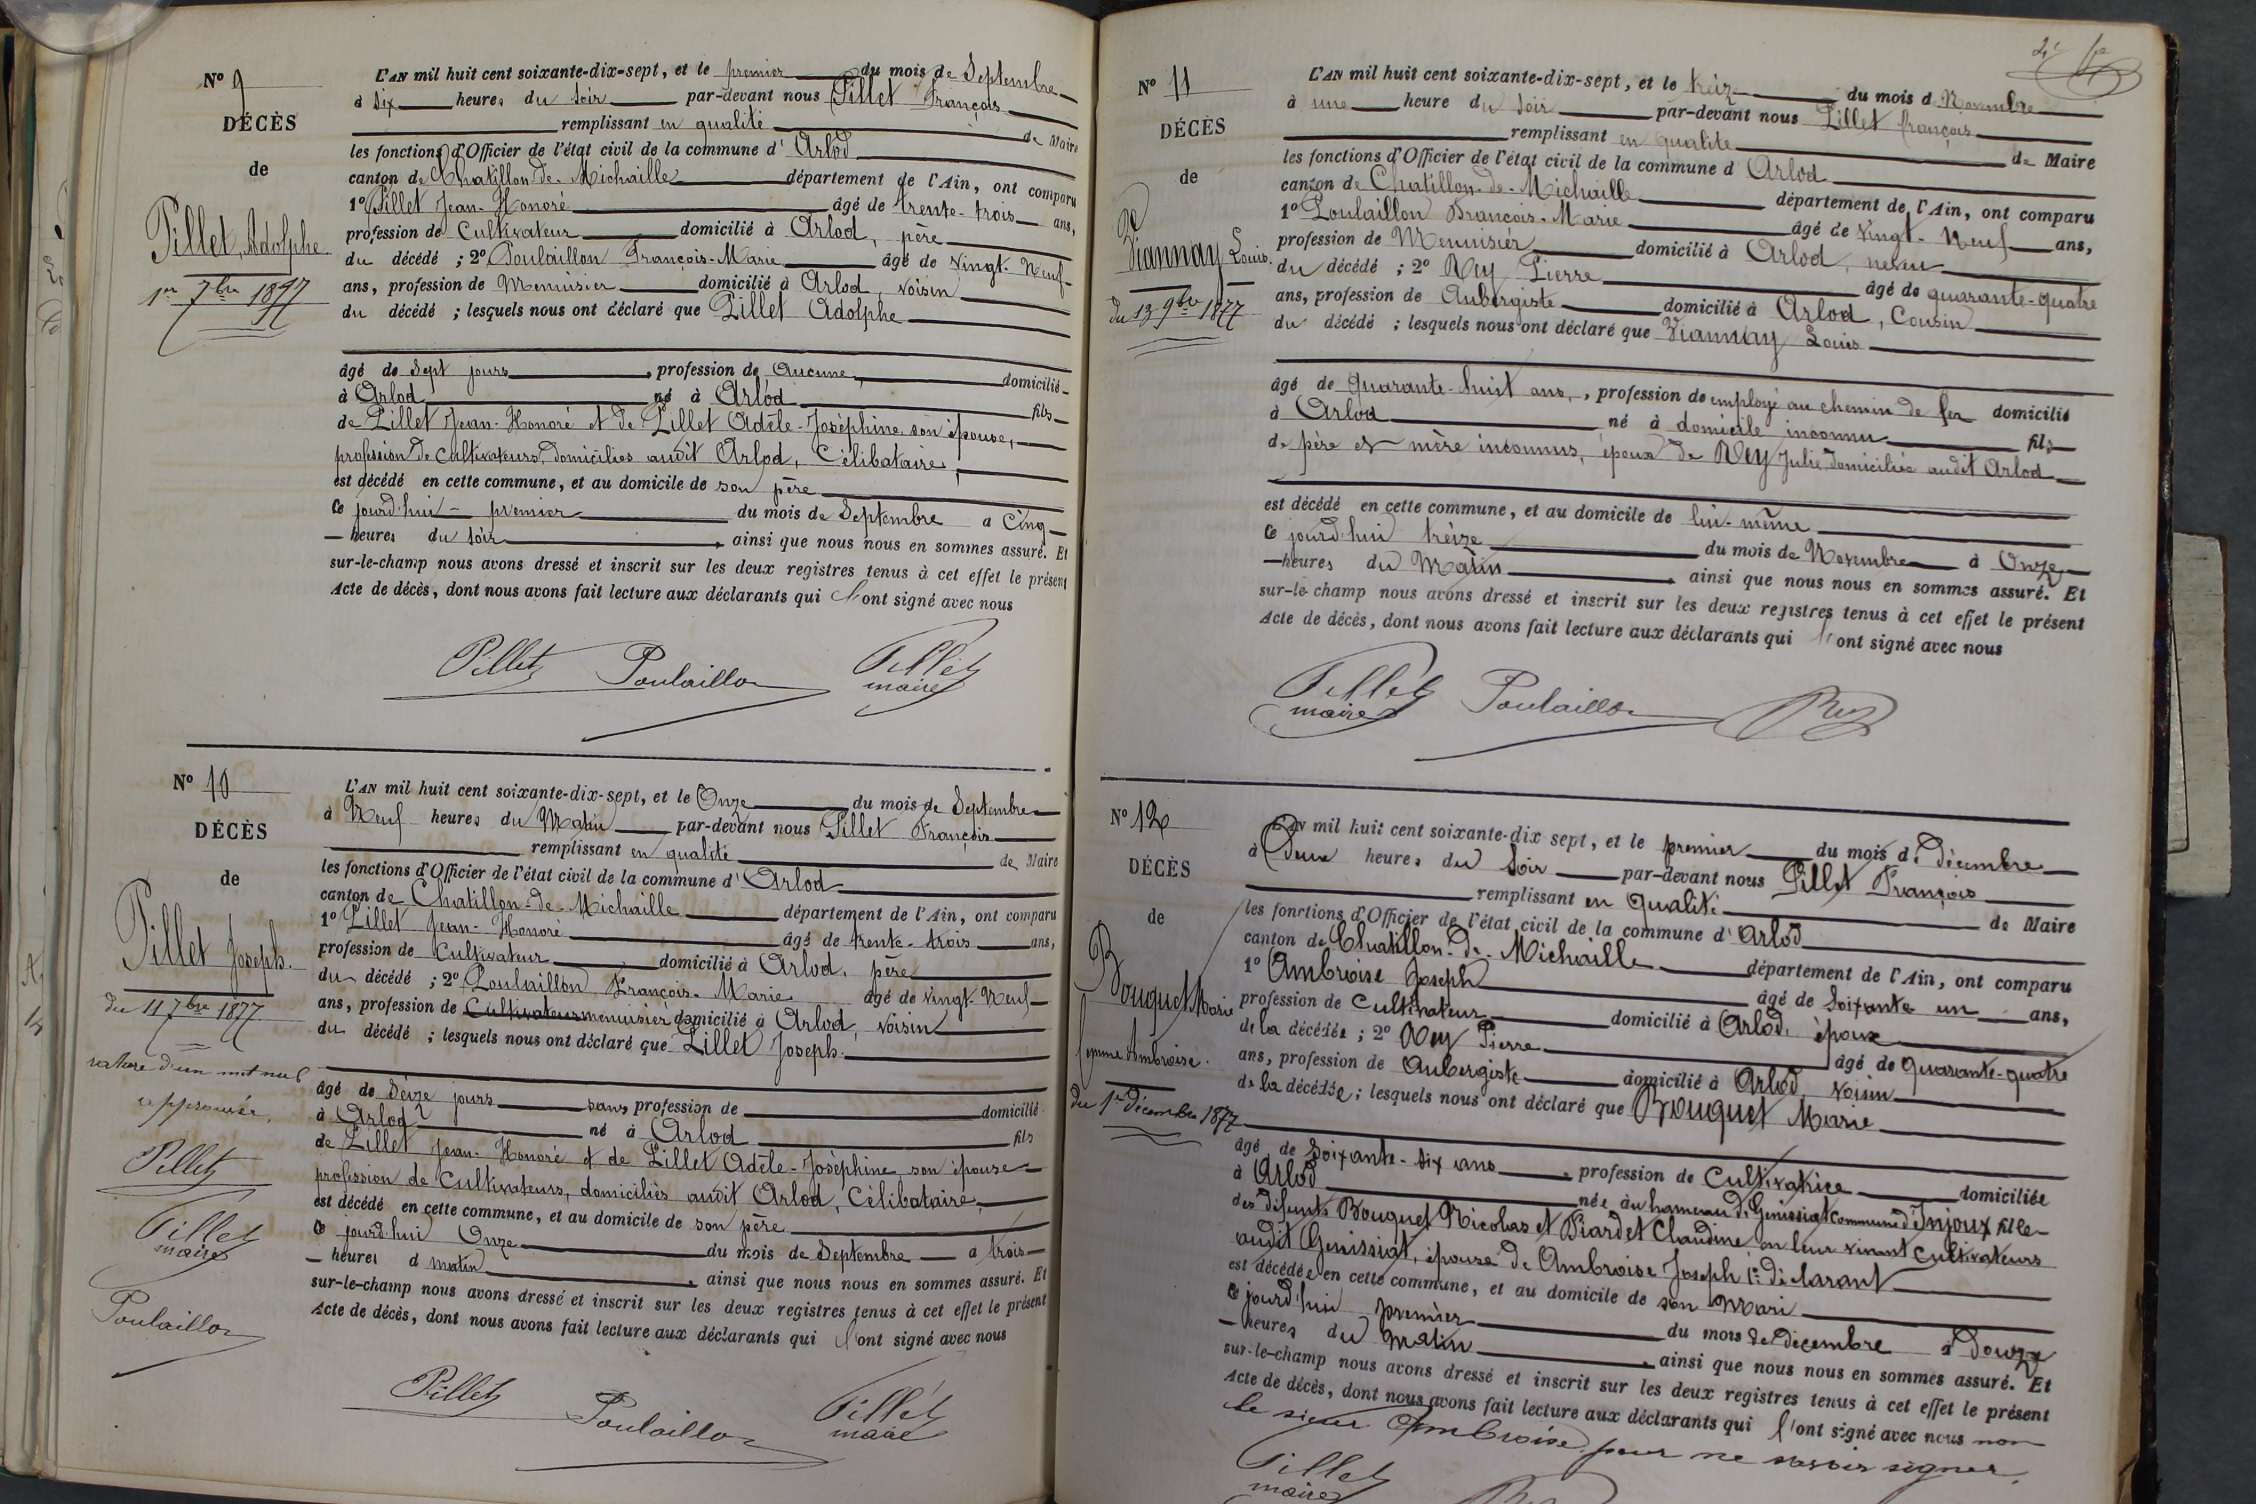 Nº 9
DÉCÈS
de
Pillet, Adolphe
1er 7bre 1877
L'AN mil huit cent soixante-dix-sept, et le premier du mois de Septembre
à six heures du soir par-devant nous Pillet François
remplissant en qualité de Maire
les fonctions d'Officier de l'état civil de la commune d' Arlod
canton de Chatillon-de-Michaille département de l'Ain, ont comparu
1º Pillet Jean-Honoré âgé de trente-trois ans,
profession de Cultivateur domicilié à Arlod, père
du décédé ; 2º Poulaillon François-Marie âgé de vingt-neuf
ans, profession de Menuisier domicilié à Arlod, voisin
du décédé ; lesquels nous ont déclaré que Pillet Adolphe
âgé de Sept jours, profession de Aucune, domicilié
à Arlod né à Arlod fils
de Pillet Jean-Honoré et de Pillet Adèle-Joséphine son épouse,
profession de cultivateurs, domiciliés audit Arlod, Célibataire,
est décédé en cette commune, et au domicile de son père
ce jourd'hui premier du mois de Septembre à Cinq
heures du soir, ainsi que nous nous en sommes assuré. Et
sur-le-champ nous avons dressé et inscrit sur les deux registres tenus à cet effet le présent
Acte de décès, dont nous avons fait lecture aux déclarants qui l'ont signé avec nous
Pillet Poulaillon Pillet
maire
Nº 10
DÉCÈS
de
Pillet Joseph.
du 11 7bre 1877
rature d'un mot nul
approuvée.
Pillet
Pillet
maire
Poulaillon
L'AN mil huit cent soixante-dix-sept, et le Onze du mois de Septembre
à Neuf heures du Matin par-devant nous Pillet François
remplissant en qualité de Maire
les fonctions d'Officier de l'état civil de la commune d' Arlod
canton de Chatillon-de-Michaille département de l'Ain, ont comparu
1º Pillet Jean-Honoré âgé de trente-trois ans,
profession de Cultivateur domicilié à Arlod, père
du décédé ; 2º Poulaillon François-Marie âgé de vingt-neuf
ans, profession de Cultivateur menuisier domicilié à Arlod, voisin
du décédé ; lesquels nous ont déclaré que Pillet Joseph.
âgé de Seize jours sans profession de domicilié
à Arlod né à Arlod fils
de Pillet Jean-Honoré et de Pillet Adèle-Joséphine son épouse
profession de Cultivateurs, domiciliés audit Arlod, Célibataire,
est décédé en cette commune, et au domicile de son père
ce jourd'hui Onze du mois de Septembre à trois
heures d matin, ainsi que nous nous en sommes assuré. Et
sur-le-champ nous avons dressé et inscrit sur les deux registres tenus à cet effet le présent
Acte de décès, dont nous avons fait lecture aux déclarants qui l'ont signé avec nous
Pillet Poulaillon Pillet
maire
Nº 11
DÉCÈS
de
Viannay Louis.
du 13 9bre 1877
L'AN mil huit cent soixante-dix-sept, et le treize du mois d Novembre
à une heure du soir par-devant nous Pillet françois
remplissant en qualité de Maire
les fonctions d'Officier de l'état civil de la commune d Arlod
canton de Chatillon-de-Michaille département de l'Ain, ont comparu
1º Poulaillon François-Marie âgé de vingt-neuf ans,
profession de Menuisier domicilié à Arlod, neveu
du décédé ; 2º Rey Pierre âgé de quarante-quatre
ans, profession de Aubergiste domicilié à Arlod, Cousin
du décédé ; lesquels nous ont déclaré que Viannay Louis
âgé de quarante-huit ans, profession de employé au chemin de fer domicilié
à Arlod né à domicile inconnu fils
de père et mère inconnus, époux de Rey Julie, domiciliée audit Arlod
est décédé en cette commune, et au domicile de lui-même
ce jourd'hui treize du mois de Novembre à Onze
heures du Matin, ainsi que nous nous en sommes assuré. Et
sur-le-champ nous avons dressé et inscrit sur les deux registres tenus à cet effet le présent
Acte de décès, dont nous avons fait lecture aux déclarants qui l'ont signé avec nous
Pillet Poulaillon Rey
maire
Nº 12
DÉCÈS
de
Bouquet Marie
femme Ambroise.
du 1er Décembre 1877
L'AN mil huit cent soixante-dix sept, et le premier du mois de décembre
à Deux heures du soir par-devant nous Pillet François
remplissant en qualité de Maire
les fonctions d'Officier de l'état civil de la commune d' Arlod
canton de Chatillon-de-Michaille département de l'Ain, ont comparu
1º Ambroise Joseph âgé de Soixante un ans,
profession de Cultivateur domicilié à Arlod, époux
de la décédée ; 2º Rey Pierre âgé de quarante-quatre
ans, profession de Aubergiste domicilié à Arlod, voisin
de la décédée ; lesquels nous ont déclaré que Bouquet Marie
âgé de Soixante-six ans, profession de Cultivatrice domiciliée
à Arlod née au hameau de Genissiat commune d'Injoux fille
des défunts Bouquet Nicolas et Biardet Claudine en leur vivant cultivateurs
audit Genissiat, épouse de Ambroise Joseph 1er déclarant
est décédée en cette commune, et au domicile de son Mari
ce jourd'hui premier du mois de décembre à Douze
heures du Matin, ainsi que nous nous en sommes assuré. Et
sur-le-champ nous avons dressé et inscrit sur les deux registres tenus à cet effet le présent
Acte de décès, dont nous avons fait lecture aux déclarants qui l'ont signé avec nous non
le sieur Ambroise, pour ne savoir signer.
Pillet
maire